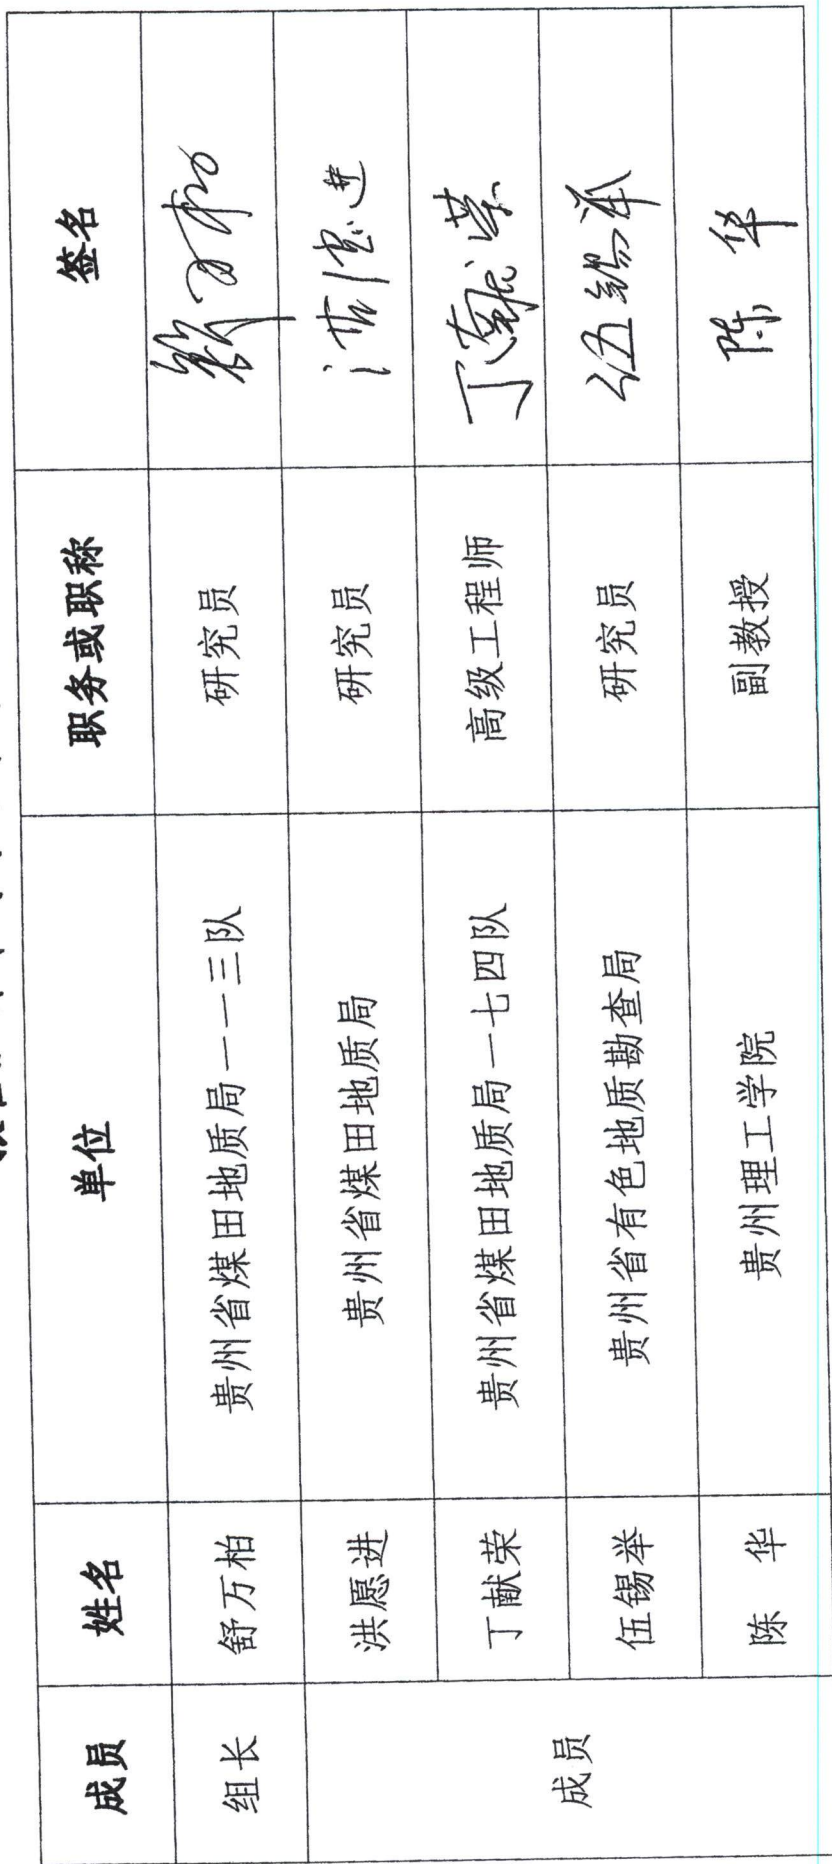 成员 姓名 单位 职务或职称 签名
组长 舒万柏 贵州省煤田地质局一一三队 研究员 舒万柏
成员 洪愿进 贵州省煤田地质局 研究员 洪愿进
丁献荣 贵州省煤田地质局一七四队 高级工程师 丁献荣
伍锡举 贵州省有色地质勘查局 研究员 伍锡举
陈 华 贵州理工学院 副教授 陈 华